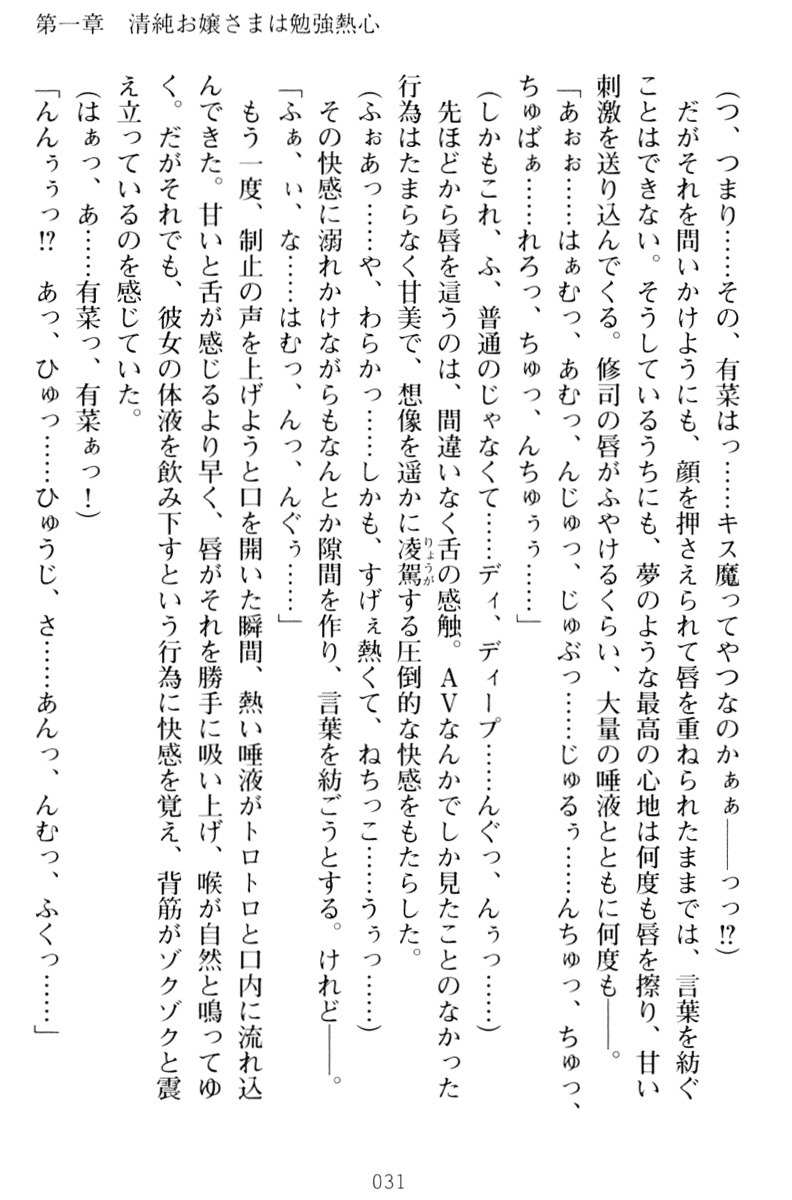 第一章　清純お嬢さまは勉強熱心
(つ、つまり……その、有菜はっ……キス魔ってやつなのかぁぁ――っっ!?)
　だがそれを問いかけようにも、顔を押さえられて唇を重ねられたままでは、言葉を紡ぐ
ことはできない。そうしているうちにも、夢のような最高の心地は何度も唇を擦り、甘い
刺激を送り込んでくる。修司の唇がふやけるくらい、大量の唾液とともに何度も――。
「あぉぉ……はぁむっ、あむっ、んじゅっ、じゅぶっ……じゅるぅ……んちゅっ、ちゅっ、
ちゅばぁ……れろっ、ちゅっ、んちゅぅぅ……」
(しかもこれ、ふ、普通のじゃなくて……ディ、ディープ……んぐっ、んぅっ……)
　先ほどから唇を這うのは、間違いなく舌の感触。ＡＶなんかでしか見たことのなかった
行為はたまらなく甘美で、想像を遥かに凌駕りょうがする圧倒的な快感をもたらした。
(ふぉあっ……や、わらかっ……しかも、すげぇ熱くて、ねちっこ……うぅっ……)
　その快感に溺れかけながらもなんとか隙間を作り、言葉を紡ごうとする。けれど――。
「ふぁ、ぃ、な……はむっ、んっ、んぐぅ……」
　もう一度、制止の声を上げようと口を開いた瞬間、熱い唾液がトロトロと口内に流れ込
んできた。甘いと舌が感じるより早く、唇がそれを勝手に吸い上げ、喉が自然と鳴ってゆ
く。だがそれでも、彼女の体液を飲み下すという行為に快感を覚え、背筋がゾクゾクと震
え立っているのを感じていた。
(はぁっ、あ……有菜っ、有菜ぁっ！)
「んんぅぅっ!?　あっ、ひゅっ……ひゅうじ、さ……あんっ、んむっ、ふくっ……」
031